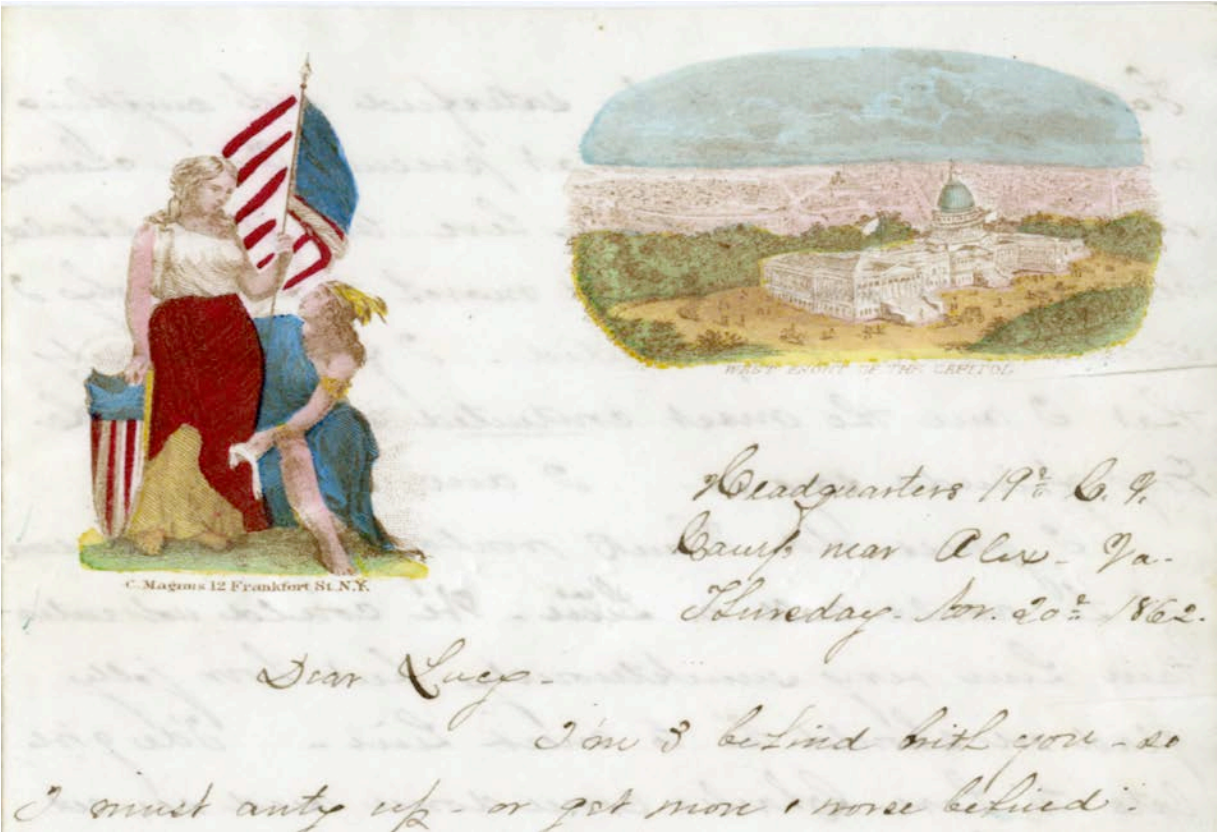 WEST FRONT OF THE CAPITOL
C. Magnus 12 Frankfort St. N.Y.
Headquarters 19th C. V.
Camp near Alex- Va-
Thursday- Nov. 20th 1862.
Dear Lucy-
I'm 3 behind with you- so
I must anty up- or get more & worse behind.